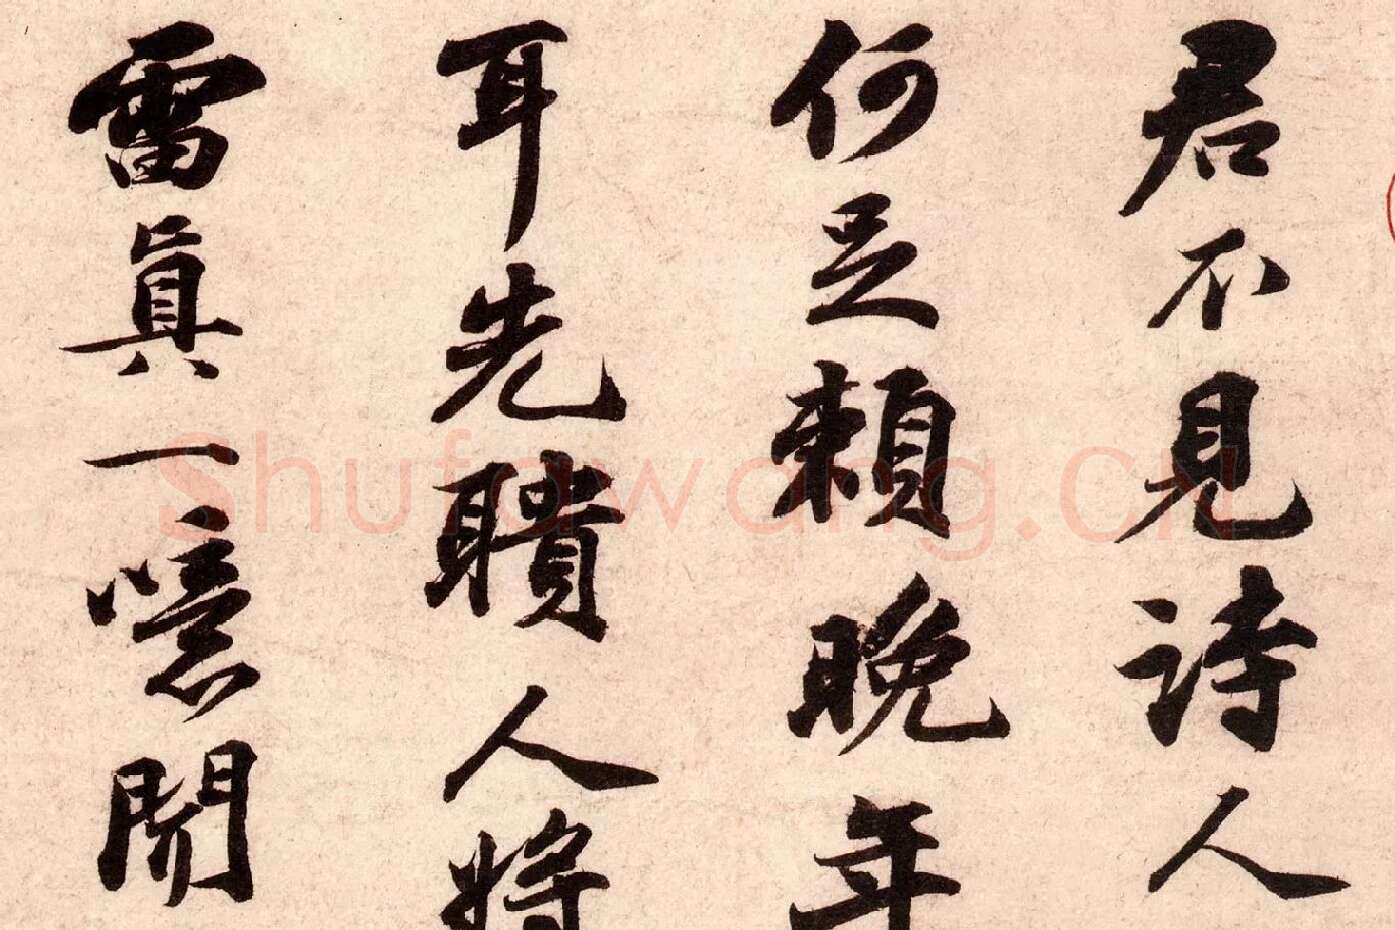 君不見詩人
何足賴晚年
耳先聵人將
雷真一噫聞
Shufawang.CN